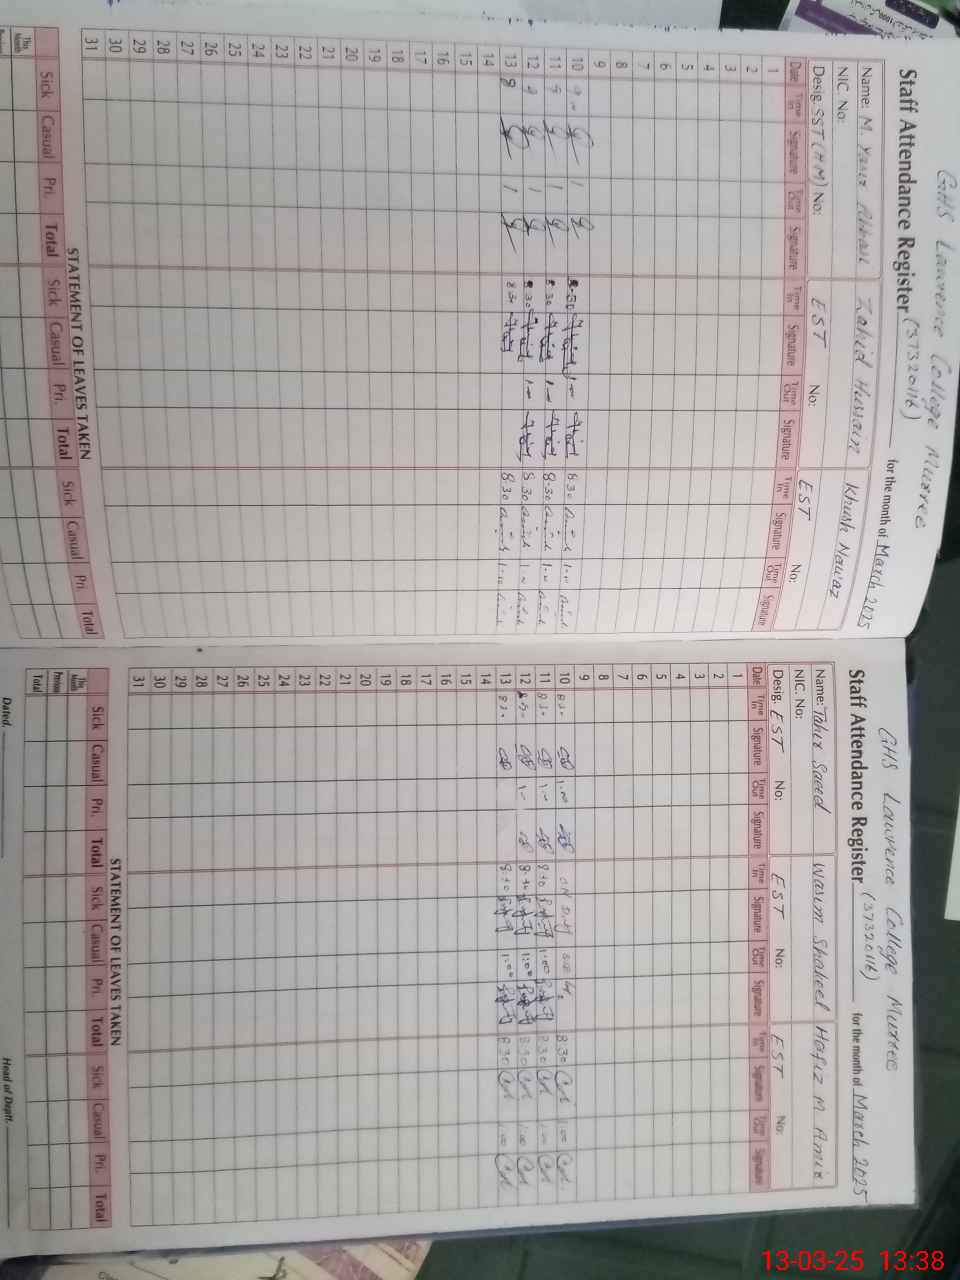 GHS Lawrence College Murree
Staff Attendance Register (37320116) for the month of March 2025
Name: M. Yasir Abbasi Zahid Hussain Khush Nawaz
NIC. No:
Desig. SST (HM) No: EST No: EST No:
Date Time In Signature Time Out Signature Time In Signature Time Out Signature Time In Signature Time Out Signature
1
2
3
4
5
6
7
8
9
10 9 1 8:30 1:00 8:30 1:00
11 9 1 8:30 1:00 8:30 1:00
12 9 1 8:30 1:00 8:30 1:00
13 8 1 8:30 8:30 1:00
14
15
16
17
18
19
20
21
22
23
24
25
26
27
28
29
30
31
STATEMENT OF LEAVES TAKEN
Sick Casual Pri. Total Sick Casual Pri. Total Sick Casual Pri Total
This Month
GHS Lawrence College Murree
Staff Attendance Register (37320116) for the month of March 2025
Name: Tahir Saeed Wasim Shakeel Hafiz M Amir
NIC. No:
Desig. EST No: EST No: EST No:
Date Time In Signature Time Out Signature Time In Signature Time Out Signature Time In Signature Time Out Signature
1
2
3
4
5
6
7
8
9
10 830 1:00 ON Duty 830 1:00
11 830 1:00 8:30 1:00 830 1:00
12 830 1:00 8:30 1:00 830 1:00
13 830 8:30 1:00 830 1:00
14
15
16
17
18
19
20
21
22
23
24
25
26
27
28
29
30
31
STATEMENT OF LEAVES TAKEN
Sick Casual Pri. Total Sick Casual Pri. Total Sick Casual Pri. Total
This Month
Previous
Total
Dated. Head of Deptt.
13-03-25 13:38